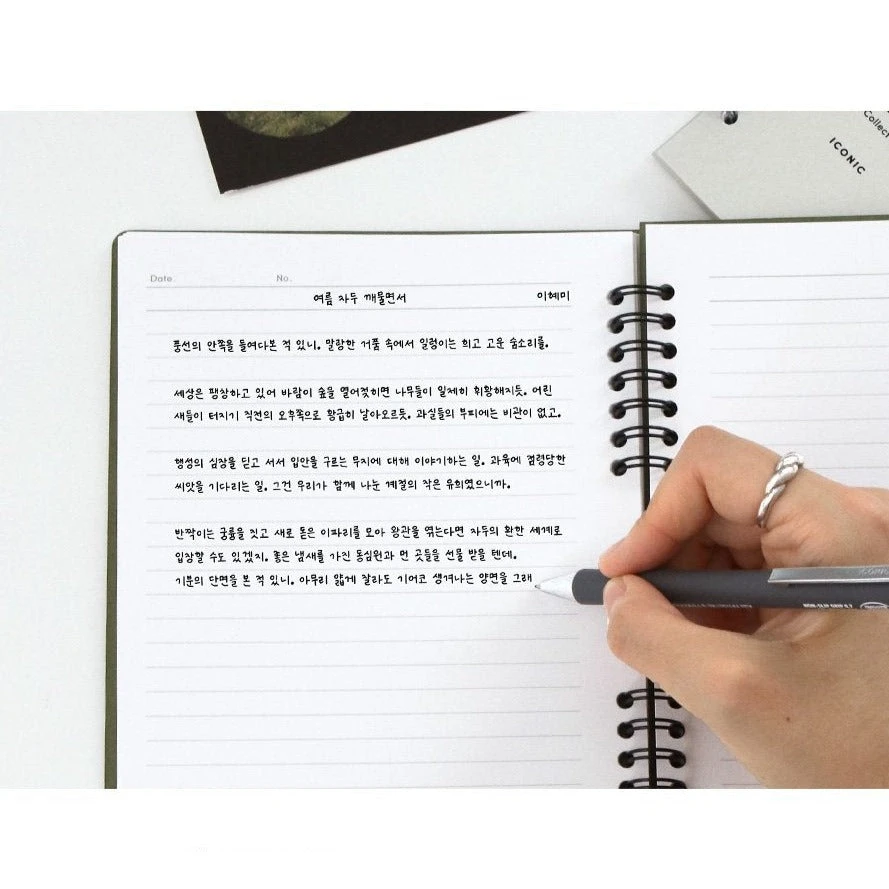 Collect
ICONIC
Date.
No.
여름 자두 깨물면서 이혜미
풍선의 안쪽을 들여다본 적 있니. 말랑한 거품 속에서 일렁이는 희고 고운 숨소리를.
세상은 팽창하고 있어 바람이 숲을 열어젖히면 나무들이 일제히 휘황해지듯. 어린
새들이 터지기 직전의 오후쪽으로 황급히 날아오르듯. 과실들의 부피에는 비관이 없고.
행성의 심장을 딛고 서서 입안을 구르는 무지에 대해 이야기하는 일. 과육에 점령당한
씨앗을 기다리는 일. 그건 우리가 함께 나눈 계절의 작은 유희였으니까.
반짝이는 궁륭을 짓고 새로 돋은 이파리를 모아 왕관을 엮는다면 자두의 환한 세계로
입장할 수도 있겠지. 좋은 냄새를 가진 동심원과 먼 곳들을 선물 받을 텐데.
기분의 단면을 본 적 있니. 아무리 얇게 잘라도 기어코 생겨나는 양면을 그래
NON-SLIP GRIP 0.7